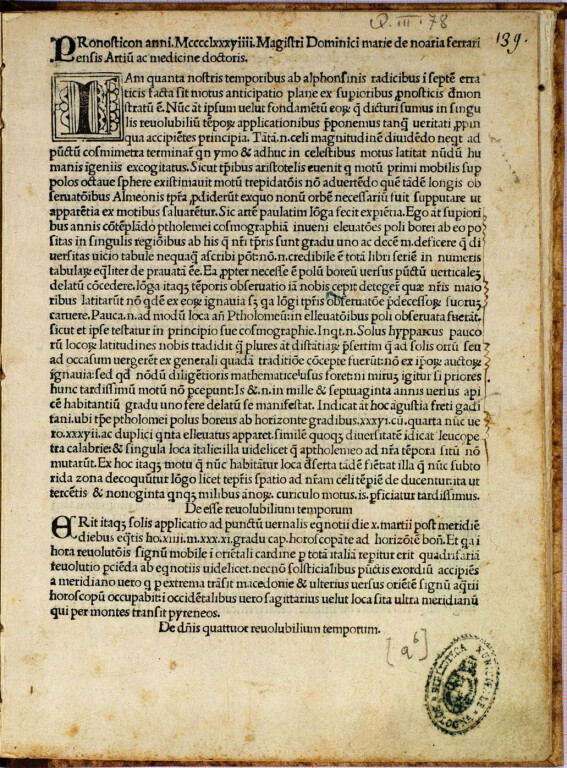 Q. III. 78
139.
PRonosticon anni. Mcccclxxxyiiii. Magistri Dominici marie de noaria ferrari
ensis Artiū ac medicine doctoris.
IAm quanta nostris temporibus ab alphonsinis radicibus i septē erra
ticis facta sit motus anticipatio plane ex supioribus ꝓnosticis dēmon
stratū ē. Nūc āt ipsum uelut fondamētū eoꝝ q̄ dicturi sumus in singu
lis reuolubiliū tēpoꝝ applicationibus ꝓponemus tanq̄ ueritati ꝓpin
qua accipiētes principia. Tātā.n.celi magnitudinē diuidēdo neqt ad
pūctū cosmimetra terminar̄ qn ymo & adhuc in celestibus motus latitat nūdū hu
manis īgeniis excogitatus. Sicut tp̄ibus aristotelis euenit q motū primi mobilis sup
polos octaue sphere existimauit motū trepidatōis nō aduertēdo que tādē longis ob
seruatōibus Almeonis tp̄ra ꝓdiderūt exquo nonū orbē necessariū fuit supputare ut
apparētia ex motibus saluarētur. Sic artē paulatim lōga fecit expiētia. Ego āt supiori
bus annis cōtēplādo ptholemei cosmographiā inueni eleuatōes poli borei ab eo po
sitas in singulis regiōibus ab his q̄ nr̄i tp̄ris sunt gradu uno ac decē m̄. deficere q̄ di
uersitas uicio tabule nequaq̄ ascribi pōt: nō.n.credibile ē totā libri seriē in numeris
tabulaꝝ eq̄liter de prauatā eē. Ea ꝓpter necesse ē polū boreū uersus pūctū uerticalez
delatū cōcedere. lōga itaqꝫ tēporis obseruatio iā nobis cepit deteger̄ quæ nr̄is maio
ribus latitarūt nō qdē ex eoꝝ ignauia sꝫ qa lōgi tp̄ris obseruatōe p̄decessoꝝ suoruꝫ
caruere. Pauca.n.ad modū loca an̄ Ptholomeū: in elleuatōibus poli obseruata fuerāt.
sicut et ipse testatur in principio sue cosmographie. Inqt.n. Solus hypparcus pauco
rū locoꝝ latitudines nobis tradidit q̄ plures āt distātiaꝝ p̄sertim q̄ ad solis ortū seu
ad occasum uergerēt ex generali quadā traditiōe cōcepte fuerūt: nō ex ip̄oꝝ auctoꝝ
ignauia: sed qd nōdū diligētioris mathematice usus foret: ni miruꝫ igitur si priores
hunc tardissimū motū nō ꝑcepunt: Is &.n.in mille & septuaginta annis uerius api
cē habitantiū gradu uno fere delatū se manifestat. Indicat āt hoc āgustia freti gadi
tani. ubi tp̄e ptholemei polus boreus ab horizonte gradibus.xxxyi.cū.quarta nūc ue
ro.xxxyii.ac duplici qnta elleuatus apparet. similē quoqꝫ diuersitatē idicat leucope
tra calabrie: & singula loca italie: illa uidelicet q̄ aptholemeo ad nr̄a tēpora sitū nō
mutarūt. Ex hoc itaqꝫ motu q̄ nūc habitātur loca dēserta tādē fiēt: at illa q̄ nūc subto
rida zona decoquūtur lōgo licet tēpris spatio ad nr̄am celi tēpiē deducentur. ita ut
tercētis & nonoginta qnqꝫ milibus ānoꝝ. curiculo motus. is. ꝑficiatur tardissimus.
De esse reuolubilium temporum
ERit itaqꝫ solis applicatio ad punctū uernalis eqnotii die x. martii post meridiē
diebus eqētis ho.xiiii.m.xxx.xi.gradu cap.horoscopāte ad horizōtē boñ. Et qa i
hora reuolutōis signū mobile i oriētali cardine ꝑ totā italiā repitur erit quadrifariā
reuolutio pciēda ab eqnotiis uidelicet. necnō solsticialibus pūctis exordiū accipiēs
a meridiano uero q ꝑ extrema trāsit macedonie & ulterius uersus oriētē signū aq̄rii
horoscopū occupabit: i occidētalibus uero sagittarius uelut loca sita ultra meridianū
qui per montes transit pyreneos.
De dn̄is quattuor reuolubilium temporum.
[a⁶]
BIBLIOTECA MUNICIPALE
BOLOGNA